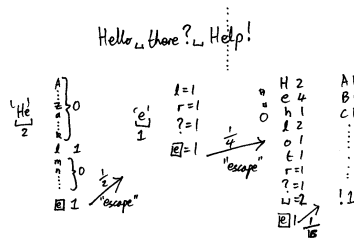 Hello␣there?␣Help!
'He'
2
A
z
a
k
0
l 1
m
n
0
e 1
1/2
"escape"
'e'
1
l=1
r=1
?=1
e=1
1/4
"escape"
n=0
H 2
e 4
h 1
l 2
o 1
t 1
r=1
?=1
␣=2
e 1
1/18
A 1
B 1
C 1
! 1